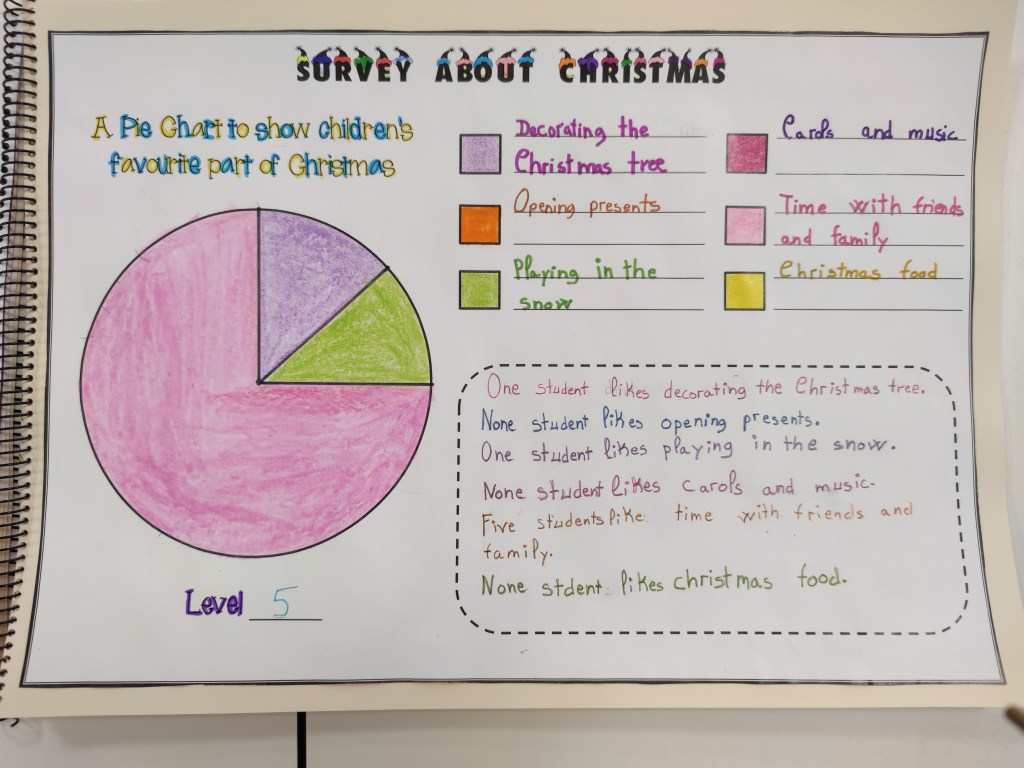 SURVEY ABOUT CHRISTMAS
A Pie Chart to show children's
favourite part of Christmas
Decorating the
Christmas tree
Opening presents
Playing in the
snow
Carols and music
Time with friends
and family
Christmas food
One student likes decorating the Christmas tree.
None student likes opening presents.
One student likes playing in the snow.
None student likes carols and music.
Five students like time with friends and
family.
None stdent likes christmas food.
Level 5